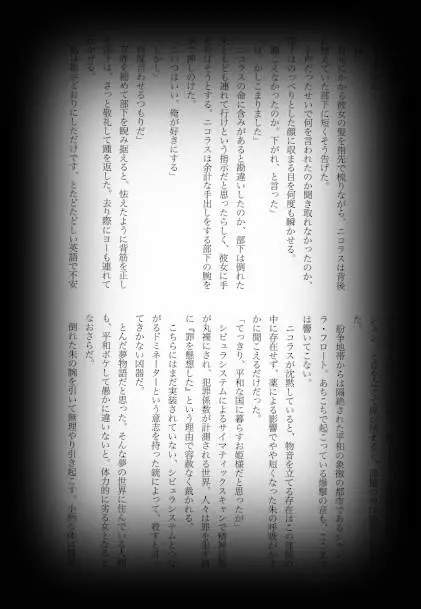 かかる彼女の髪を指先で梳りながら、ニコラスは背後
控えていた部下に短くそう告げた。
だったせいで何を言われたのか聞き取れなかったのか、
下はのっぺりとした顔に収まる目を何度も瞬かせる。
こえなかったのか。下がれ、と言った」
は、かしこまりました」
コラスの命に含みがあると勘違いしたのか、部下は倒れた
も連れて行けという指示だと思ったらしく、彼女に手
ばそうとする。ニコラスは余計な手出しをする部下の腕を
で押しのけた。
いつはいい、俺が好きにする」
しかし」
度言わせるつもりだ」
を細めて部下を睨み据えると、怯えたように背筋を正し
さっと敬礼して踵を返した。去り際にヨーも連れて
かせる。
指示どおりにしただけです、とたどたどしい英語で不安
た。
紛争地帯からは隔絶された平和の象徴の都市であるシャ
ラ・フロート。あちこちで起こっている爆撃の音も、ここ
は響いてこない。
ニコラスが沈黙していると、物音を立てる存在はこの部屋の
中に存在せず、薬による影響でやや短くなった朱の呼吸が
かに聞こえるだけだった。
「てっきり、平和な国に暮らすお姫様だと思ったが」
シビュラシステムによるサイマティックスキャンで精神
が丸裸にされ、犯罪係数が計測される世界。人々は罪を犯す前
に『罪を懸想した』という理由で容赦なく裁かれる。
こちらにはまだ実装されていない、シビュラシステムとつな
がるドミネーターという意志を持った銃によって。殺すと
てきかない凶器だ。
とんだ夢物語だと思った。そんな夢の世界に住んでいる人間
も、平和ボケして愚かに違いないと。体力的に劣る女となると
なおさらだ。
倒れた朱の腕を引いて無理やり引き起こす。小柄な体は